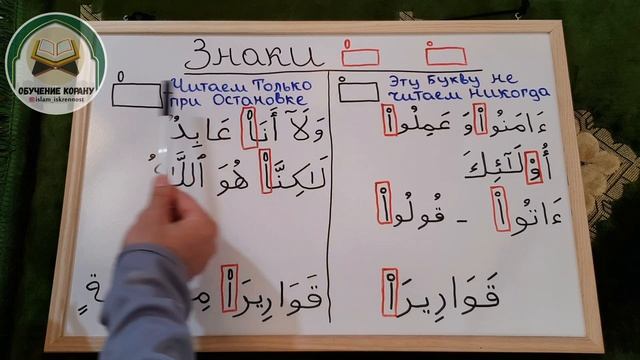 ОБУЧЕНИЕ КОРАНУ
@islam_iskrennost
Знаки
Читаем Только
при Остановке
وَلَآ أَنَا۠ عَابِدٌ
لَٰكِنَّا۠ هُوَ ٱللَّهُ
قَوَارِيرَا۠
Эту Букву не
читаем никогда
ءَامَنُوا۟ وَ عَمِلُوا۟
أُو۟لَٰٓئِكَ
ءَاتُوا۟ - قُولُوا۟
قَوَارِيرَا۟